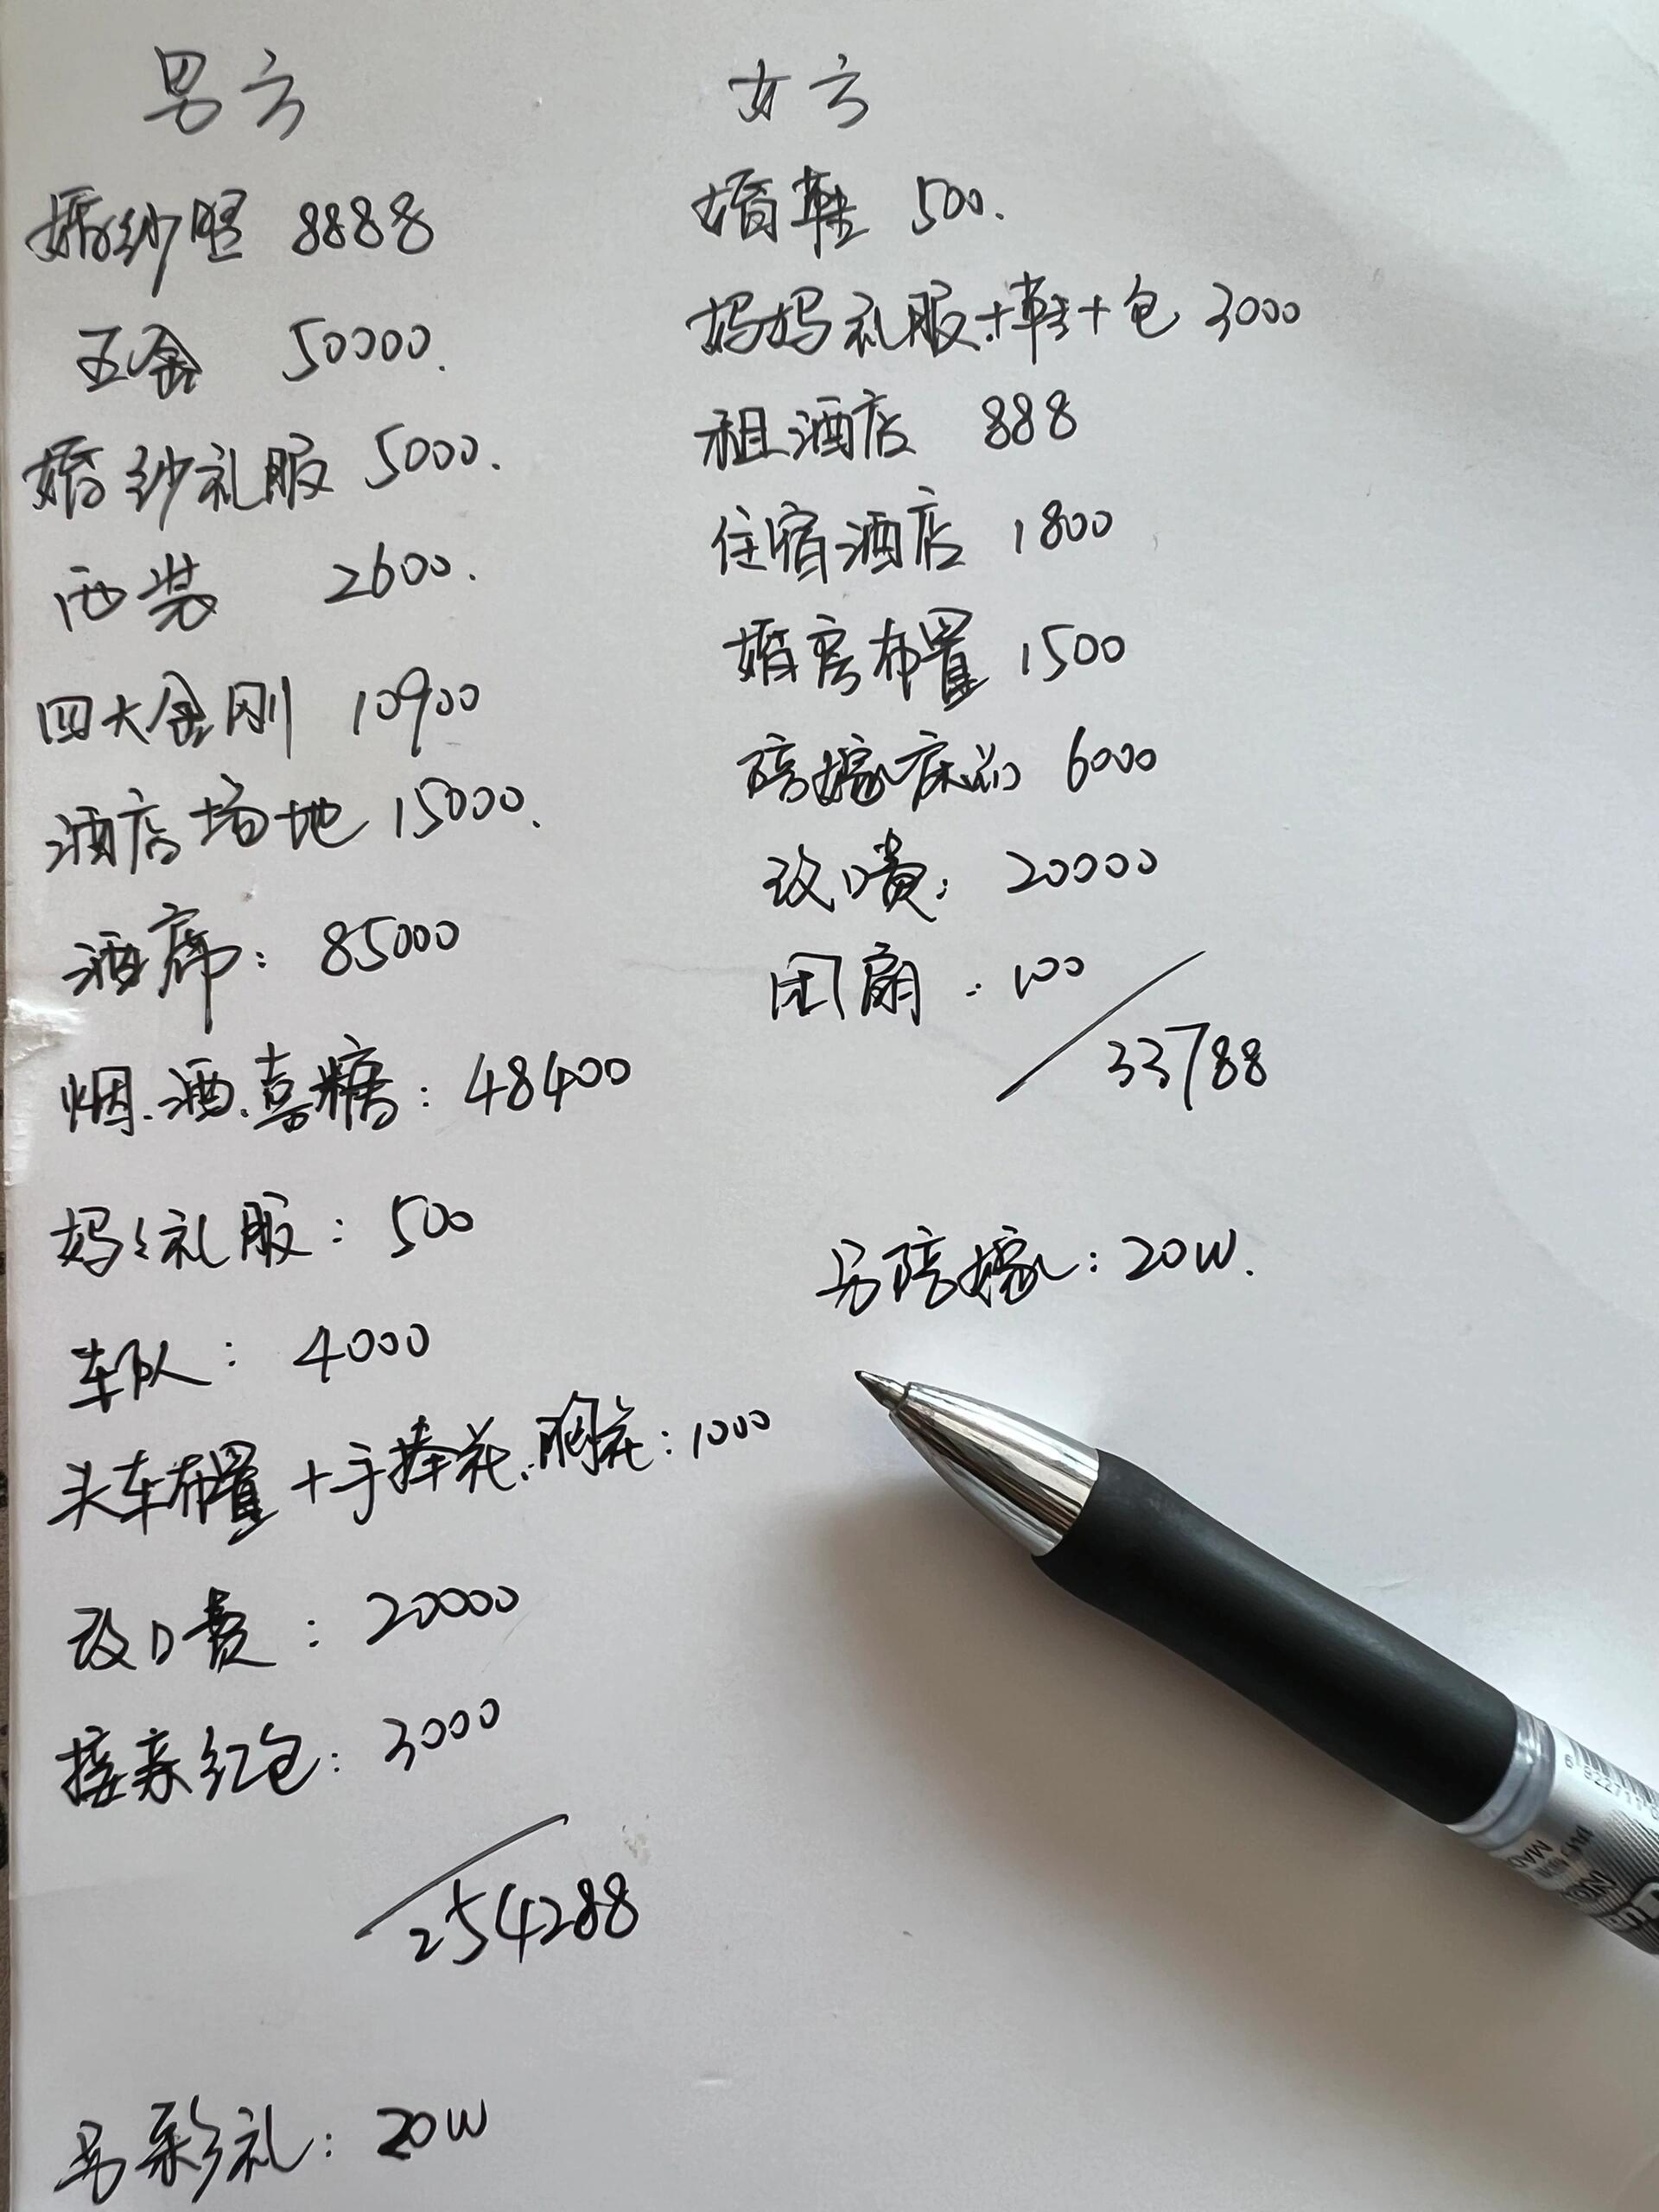 男方
婚纱照 8888
五金 50000.
婚纱礼服 5000.
西装 2600.
四大金刚 10900
酒店场地 15000.
酒席: 85000
烟.酒.喜糖: 48400
妈々礼服: 500
车队: 4000
头车布置+手捧花.胸花: 1000
改口费: 20000
接亲红包: 3000
254288
另彩礼: 20W
女方
婚鞋 500.
妈妈礼服+鞋+包 3000
租酒店 888
住宿酒店 1800
婚房布置 1500
陪嫁床品 6000
改口费: 20000
团扇: 100
33788
另陪嫁: 20W.